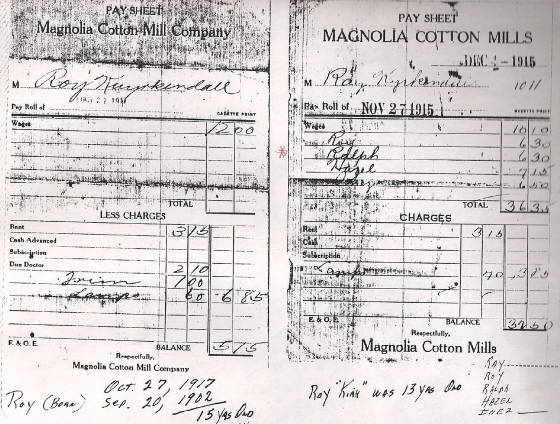 PAY SHEET
Magnolia Cotton Mill Company
M Roy Kuykendall
OCT 27 1917
Pay Roll of
GAZETTE PRINT
Wages 12 00
TOTAL
LESS CHARGES
Rent 3 15
Cash Advanced
Subscription
Due Doctor 2 10
1 00
Lamp 60 6 85
E. & O. E. BALANCE 5 15
Respectfully,
Magnolia Cotton Mill Company
Oct. 27, 1917
Roy (Born) Sep. 20, 1902
15 yrs Old
PAY SHEET
MAGNOLIA COTTON MILLS
DEC 1915
M Ray Kuykendall 1011
Pay Roll of NOV 27 1915
GAZETTE PRINT
Wages 10 10
Roy 6 30
Ralph 6 30
Hazel 7 15
6 50
TOTAL 36 35
CHARGES
Rent 3 15
Cash
Subscription
Lamp 70 3 85
E. & O. E. BALANCE 32 50
Respectfully,
Magnolia Cotton Mills
Roy "Kirk" was 13 yrs Old
RAY
ROY
RALPH
HAZEL
INEZ